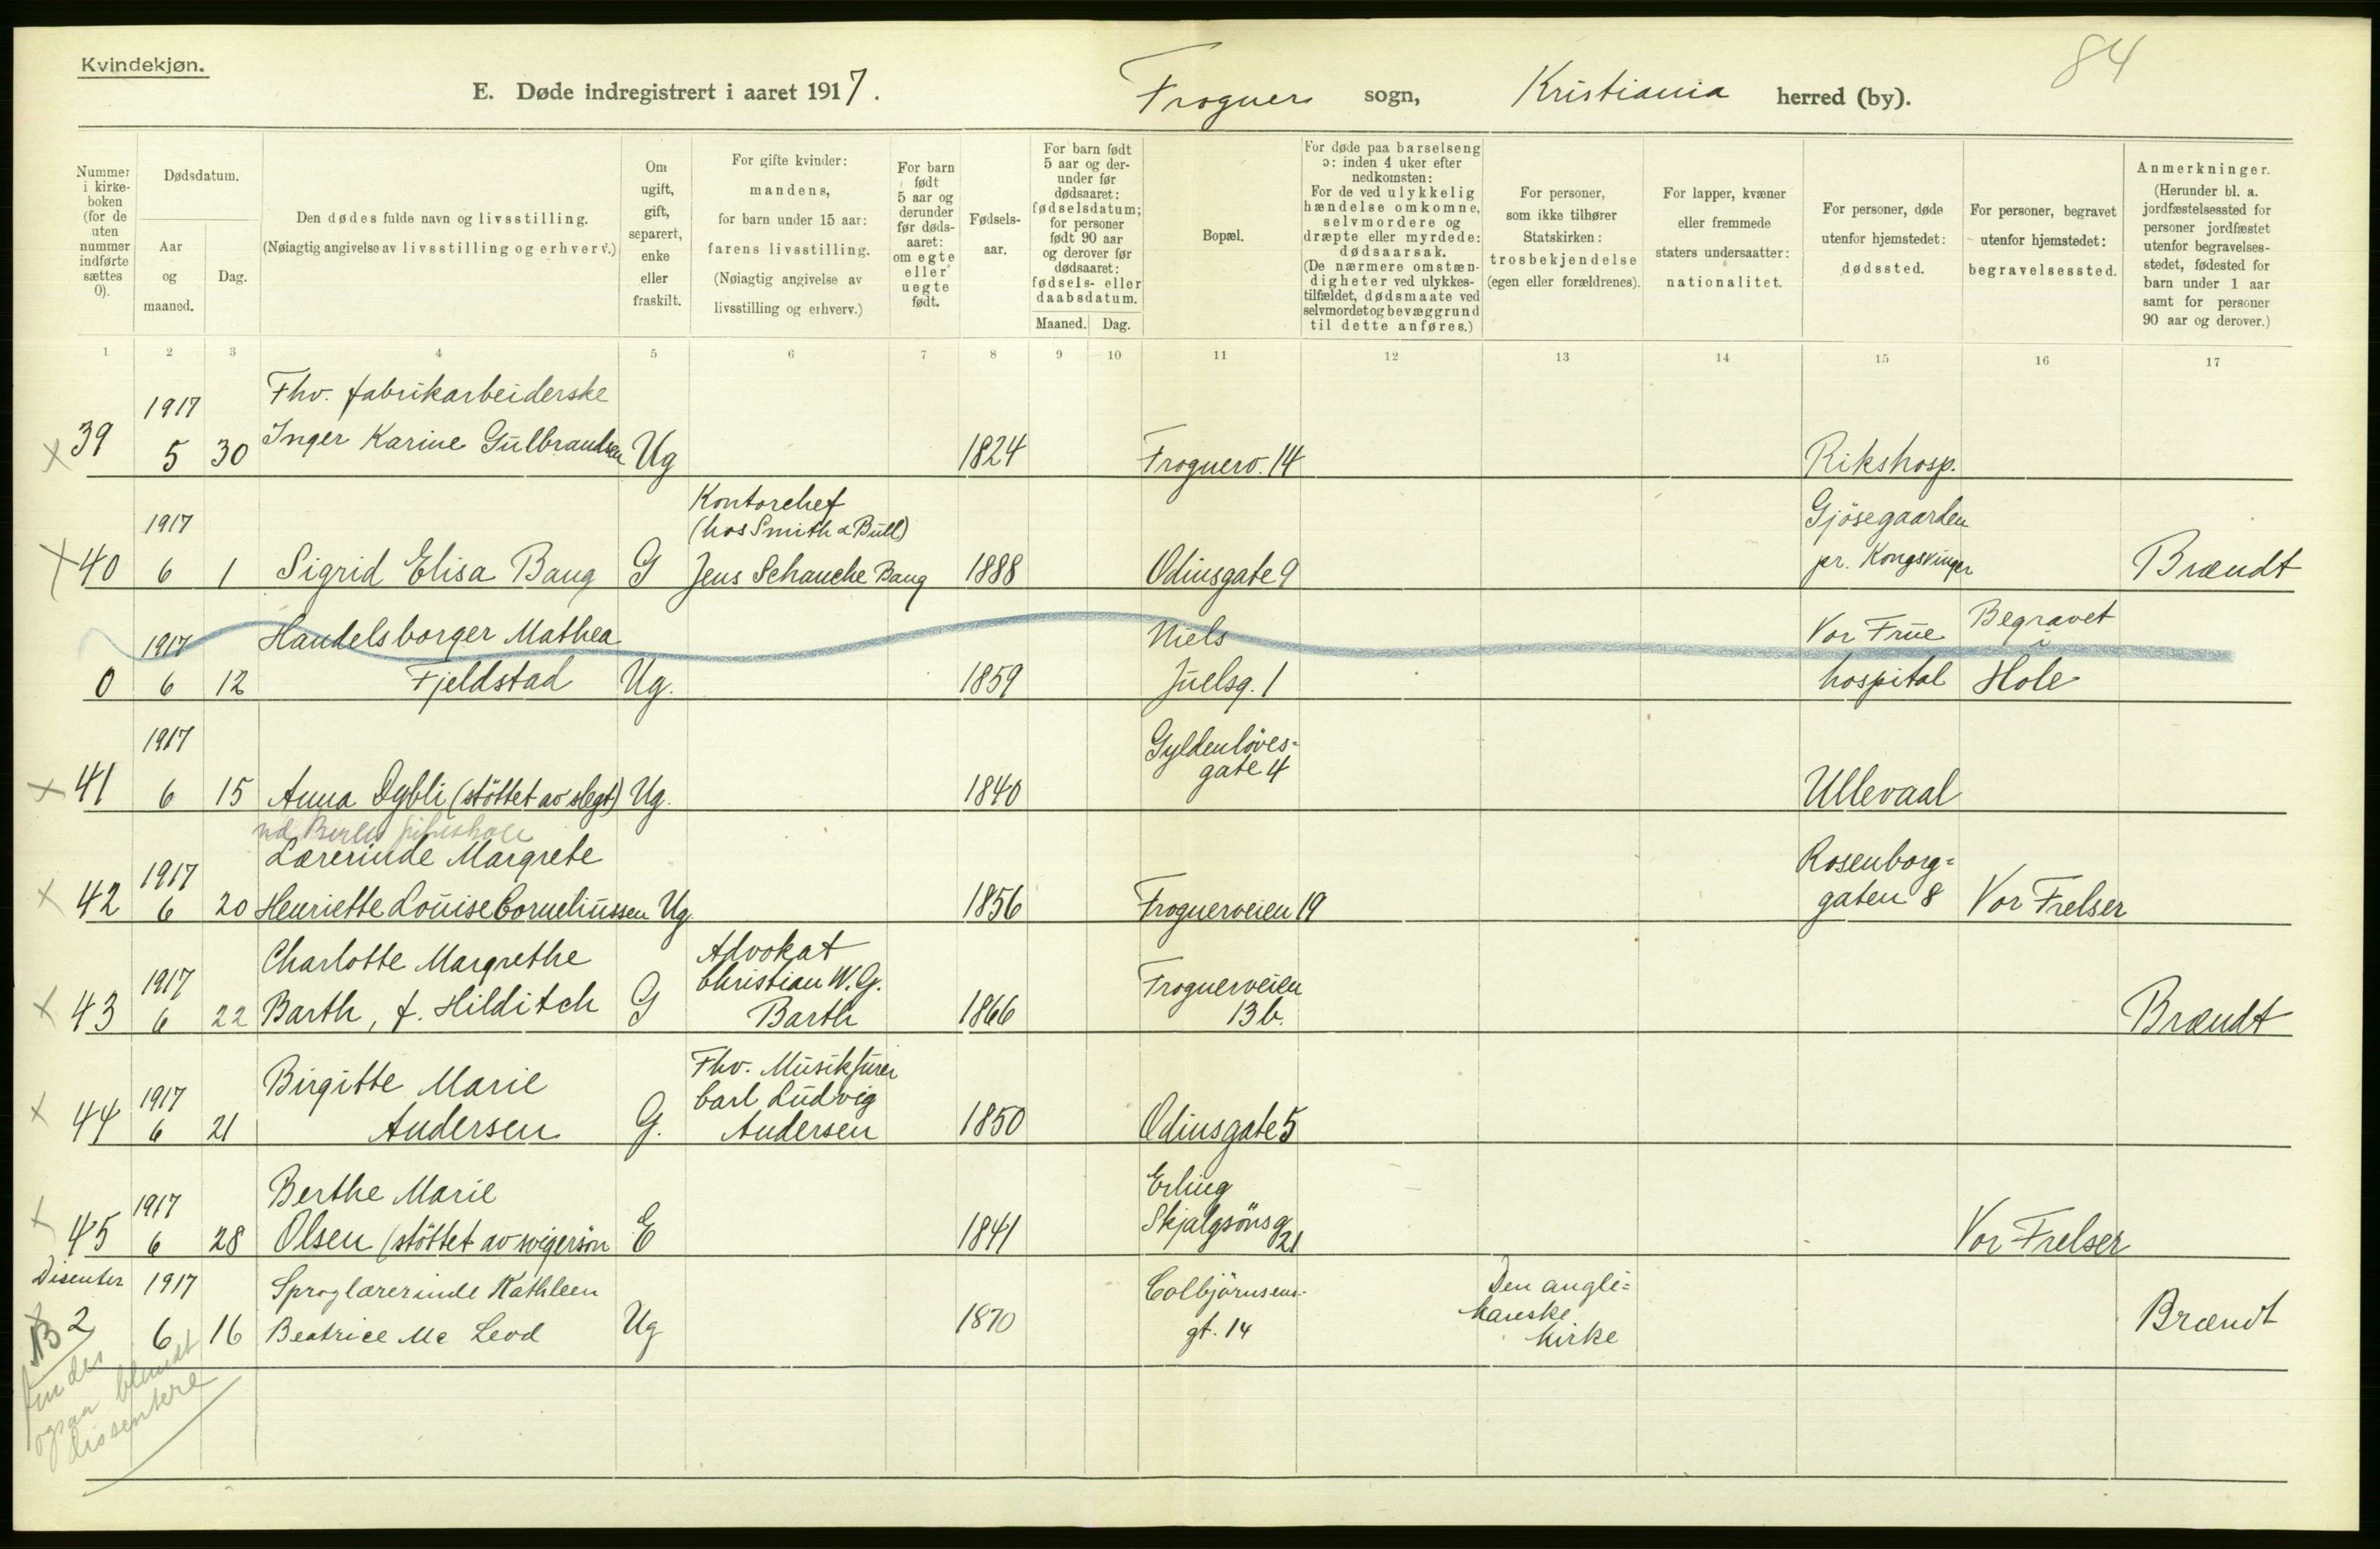 Kvindekjøn.
84
E. Døde indregistrert i aaret 1917.
Frogner sogn, Kristiania herred (by).
Nummer i kirkeboken (for de uten nummer indførte sættes 0).
Dødsdatum.
Aar og maaned.
Dag.
Den dødes fulde navn og livsstilling.
(Nøiagtig angivelse av livsstilling og erhverv.)
Om ugift, gift, separert, enke eller fraskilt.
For gifte kvinder:
mandens,
for barn under 15 aar:
farens livsstilling.
(Nøiagtig angivelse av
livsstilling og erhverv.)
For barn født 5 aar og derunder før dødsaaret: om egte eller uegte født.
Fødselsaar.
For barn født 5 aar og derunder før dødsaaret: fødselsdatum; for personer født 90 aar og derover før dødsaaret: fødsels- eller daabsdatum.
Maaned.
Dag.
Bopæl.
For døde paa barselseng
ɔ: inden 4 uker efter
nedkomsten:
For de ved ulykkelig
hændelse omkomne,
selvmordere og
dræpte eller myrdede:
dødsaarsak.
(De nærmere omstæn-
digheter ved ulykkes-
tilfældet, dødsmaate ved
selvmordet og bevæggrund
til dette anføres.)
For personer,
som ikke tilhører
Statskirken:
trosbekjendelse
(egen eller forældrenes).
For lapper, kvæner
eller fremmede
staters undersaatter:
nationalitet.
For personer, døde
utenfor hjemstedet:
dødssted.
For personer, begravet
utenfor hjemstedet:
begravelsessted.
Anmerkninger.
(Herunder bl. a.
jordfæstelsessted for
personer jordfæstet
utenfor begravelses-
stedet, fødested for
barn under 1 aar
samt for personer
90 aar og derover.)
1 2 3 4 5 6 7 8 9 10 11 12 13 14 15 16 17
1917 Fhv. fabrikarbeiderske
x 39 5 30 Inger Karine Gulbrandsen Ug 1824 Frognerv. 14 Rikshosp.
1917 Kontorchef (hos Smith & Bull) Gjösegaarden
x 40 6 1 Sigrid Elisa Bang G Jens Schanche Bang 1888 Odinsgate 9 pr. Kongsvinger Brændt
1917 Handelsborger Mathea Niels Vor Frue Begravet i
0 6 12 Fjeldstad Ug. 1859 Juelsg. 1 hospital Hole
1917 Gyldenlöves-
gate 4
x 41 6 15 Anna Dybli (støttet av slegt) Ug. 1840 Ullevaal
1917 Lærerinde Margrete Rosenborg-
x 42 6 20 Henriette Louise Corneliussen Ug. 1856 Frognerveien 19 gaten 8 Vor Frelser
1917 Charlotte Margrethe Advokat Christian W. G. Frognerveien
x 43 6 22 Barth, f. Hilditch G Barth 1866 13 b. Brændt
1917 Birgitte Marie Fhv. Musikfurer Carl Ludvig
x 44 6 21 Andersen G. Andersen 1850 Odinsgate 5
1917 Berthe Marie Erling
x 45 6 28 Olsen (støttet av svigersön E 1841 Skjalgsönsg 21 Vor Frelser
Disenter 1917 Sproglærerinde Kathleen Colbjörnsens- Den angli-
kanske
2 6 16 Beatrice Mc Leod Ug 1870 gt. 14 kirke Brændt
NB
findes
ogsaa blandt
dissentere